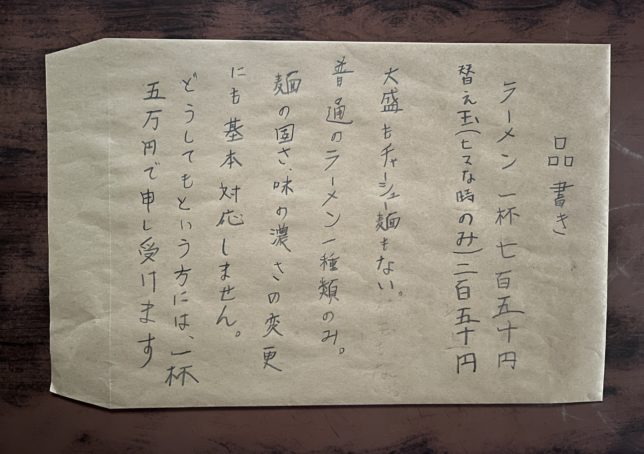 品書き
ラーメン 一杯 七百五十円
替え玉(ヒマな時のみ)二百五十円
大盛もチャーシュー麺もない。
普通のラーメン一種類のみ。
麺の固さ、味の濃さの変更
にも基本対応しません。
どうしてもという方には、一杯
五万円で申し受けます